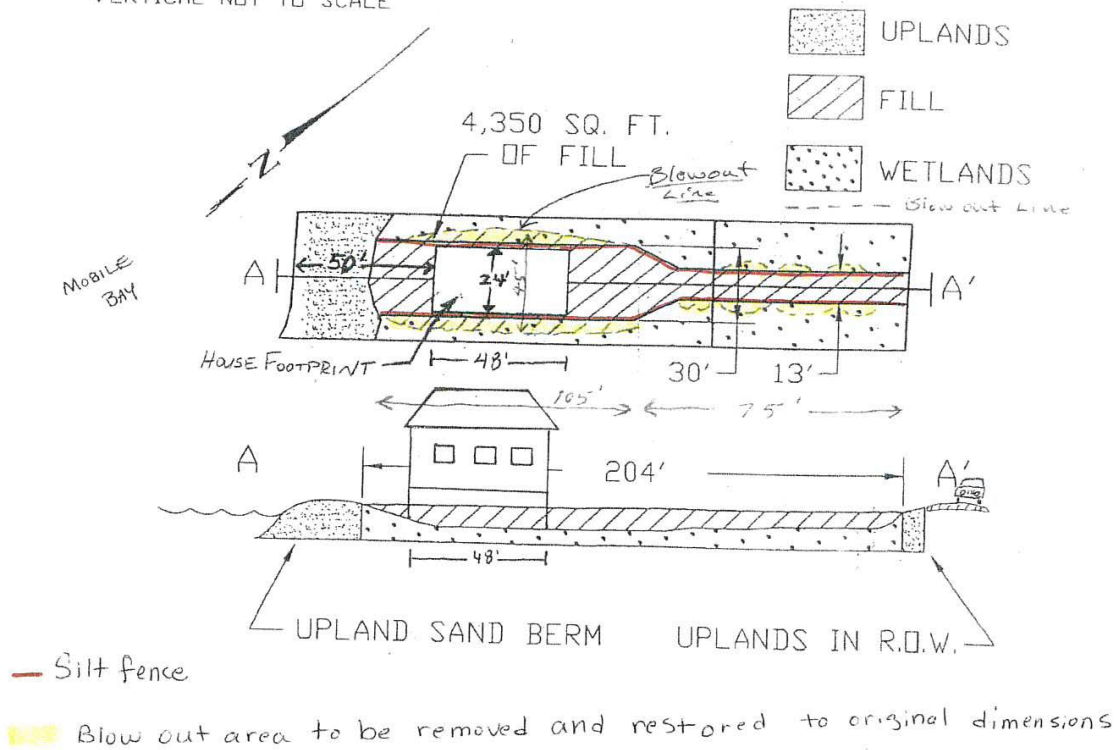 VERTICAL NOT TO SCALE
UPLANDS
FILL
WETLANDS
Blow out Line
N
4,350 SQ. FT.
OF FILL
Blowout
Line
MOBILE
BAY
A
50'
24'
45'
A'
HOUSE FOOTPRINT
48'
30'
13'
105'
75'
A
204'
A'
48'
UPLAND SAND BERM
UPLANDS IN R.O.W.
Silt fence
Blow out area to be removed and restored to original dimensions